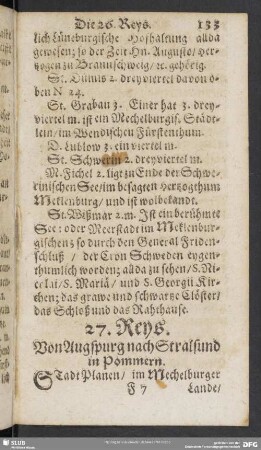 Die 26. Reys. 133
lich Lüneburgische Hofhaltung allda
gewesen; so der Zeit Hn. Augusto/ Her-
zogen zu Braunschweig/ ꝛc. gehörig.
St. Dünis 2. dreyviertel davon o-
ben N 24.
St. Graban 3. Einer hat 3. drey-
viertel m. ist ein Mechelburgis. Städt-
lein/ im Wendischen Fürstenthum.
D. Lublow 3. ein viertel m.
St. Schwerin 2. dreyviertel m.
M. Fichel 2. ligt zu Ende der Schwe-
rinischen See/ im besagten Hertzogthum
Meklenburg/ und ist wolbekandt.
St. Wißmar 2. m. Ist ein berühmte
See: oder Meerstadt im Meklenbur-
gischen; so durch den General Friden-
schluß / der Cron Schweden eygen-
thumlich worden; allda zu sehen/ S. Ni-
colai/ S. Mariä/ und S. Georgii Kir-
chen; das grawe und schwartze Clöster/
das Schloß und das Rahthause.
27. Reys.
Von Augspurg nach Stralsund
in Pommern.
Stadt Planen/ im Mechelburger
F 7 Lande/
SLUB
DFG